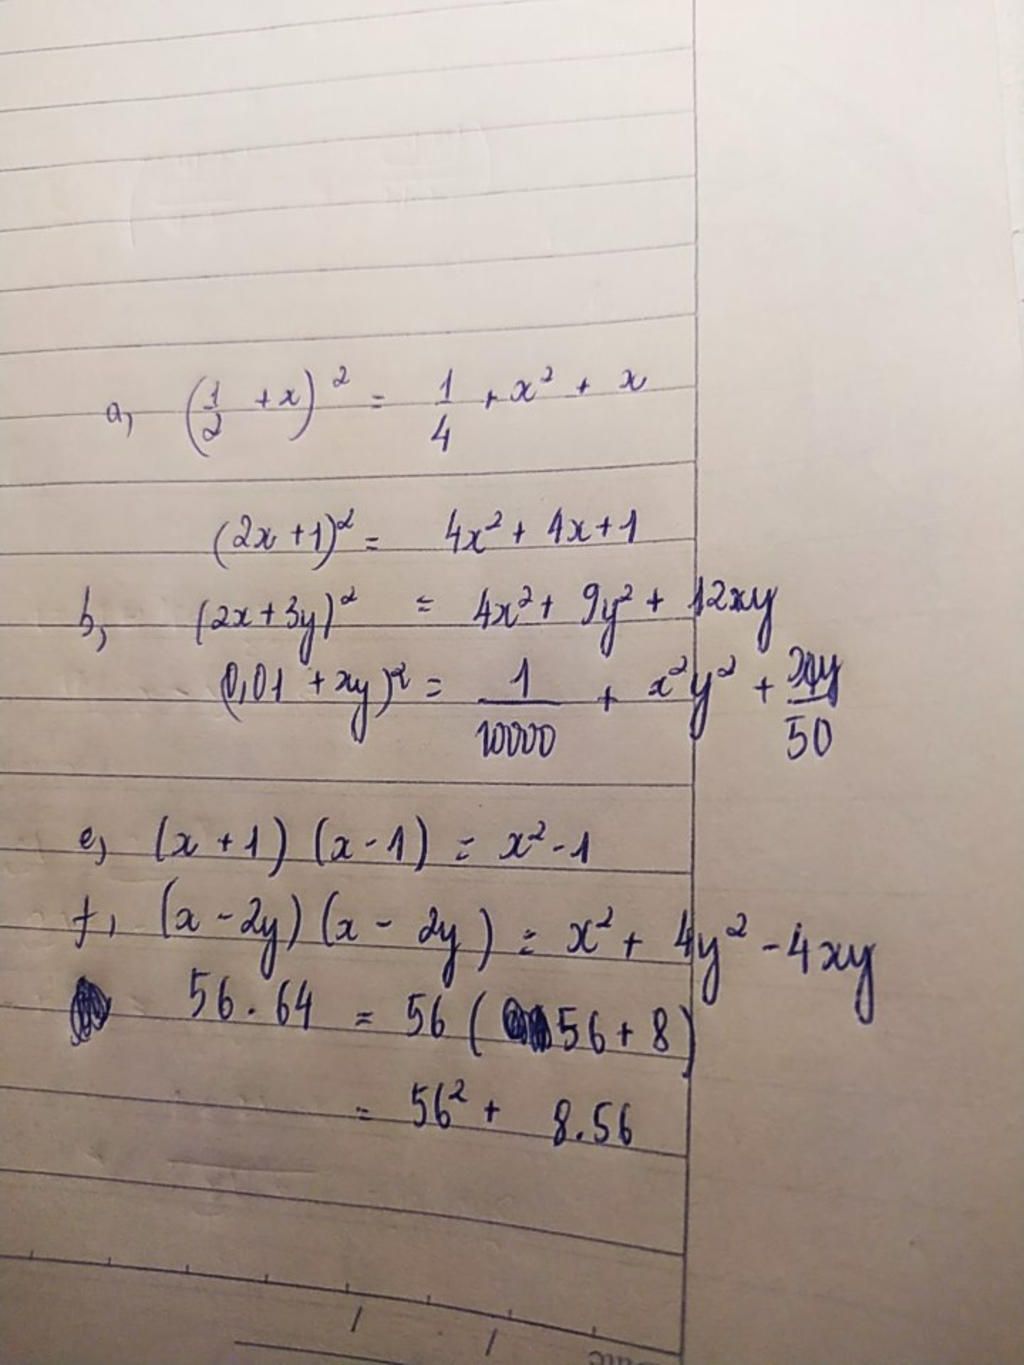 a, (1/2 + x)² = 1/4 + x² + x
(2x + 1)² = 4x² + 4x + 1
b, (2x + 3y)² = 4x² + 9y² + 12xy
(0,01 + xy)² = 1/10000 + x²y² + xy/50
e, (x + 1) (x - 1) = x² - 1
f, (x - 2y) (x - 2y) = x² + 4y² - 4xy
56.64 = 56 (56 + 8)
= 56² + 8.56